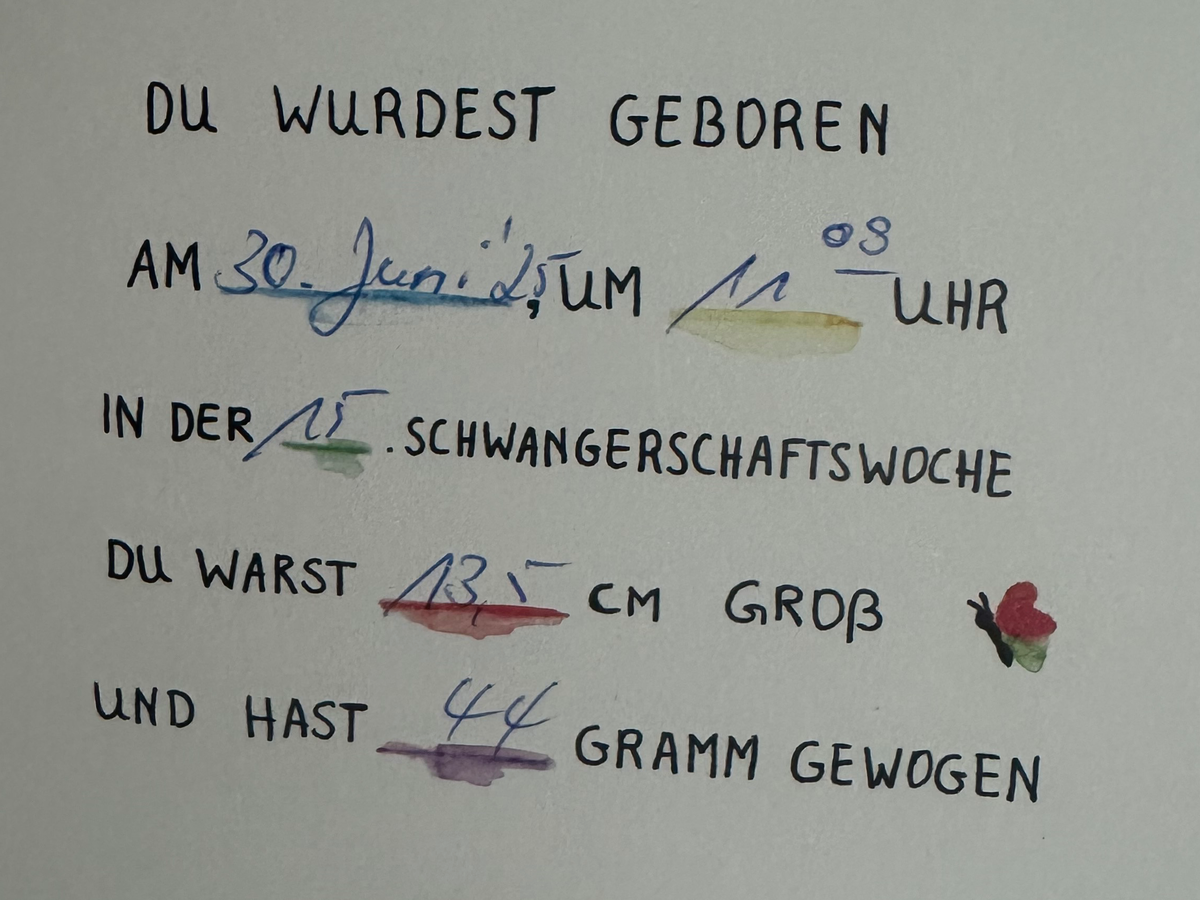 DU WURDEST GEBOREN
AM 30. Juni '25, UM 11 09 UHR
IN DER 15. SCHWANGERSCHAFTSWOCHE
DU WARST 13,5 CM GROß
UND HAST 44 GRAMM GEWOGEN